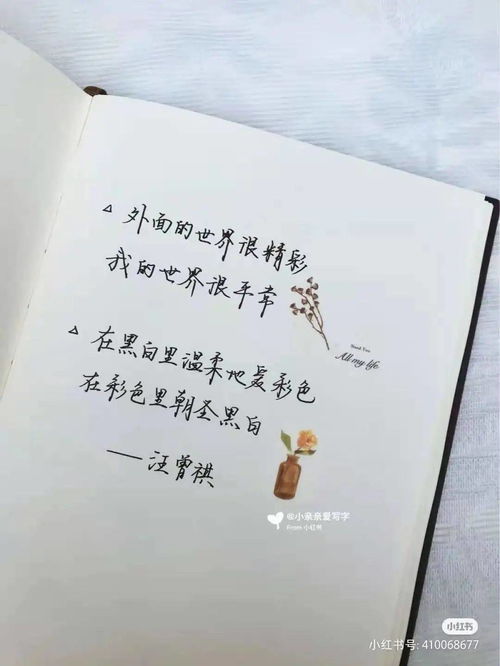 △ 外面的世界很精彩
我的世界很平常
Thank You
All my life.
△ 在黑白里温柔地爱彩色
在彩色里朝圣黑白
——汪曾祺
@小亲亲爱写字
From 小红书
小红书
小红书号: 410068677